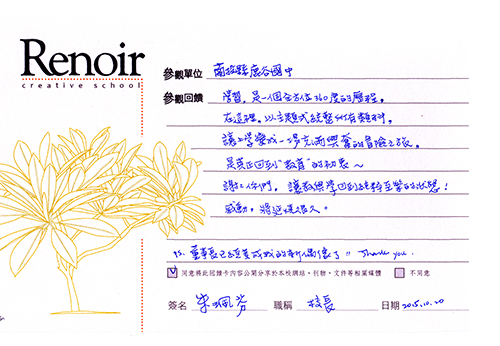 Renoir
creative school
參觀單位 南投縣鹿谷國中
參觀回饋 學習,是一個全方位360度的歷程。
在這裡。以主題式統整所有類科。
讓上學變成一場充滿興奮的冒險之旅。
是真正回到"教育"的初衷~
謝謝你們,讓教與學回到純粹至善的狀態!
感動,將延續很久。
PS. 董事長已經是我的新偶像了!! Thank you.
同意將此回饋卡內容公開分享於本校網站、刊物、文件等相關媒體 不同意
簽名 朱珮芳 職稱 校長 日期 2015.10.20